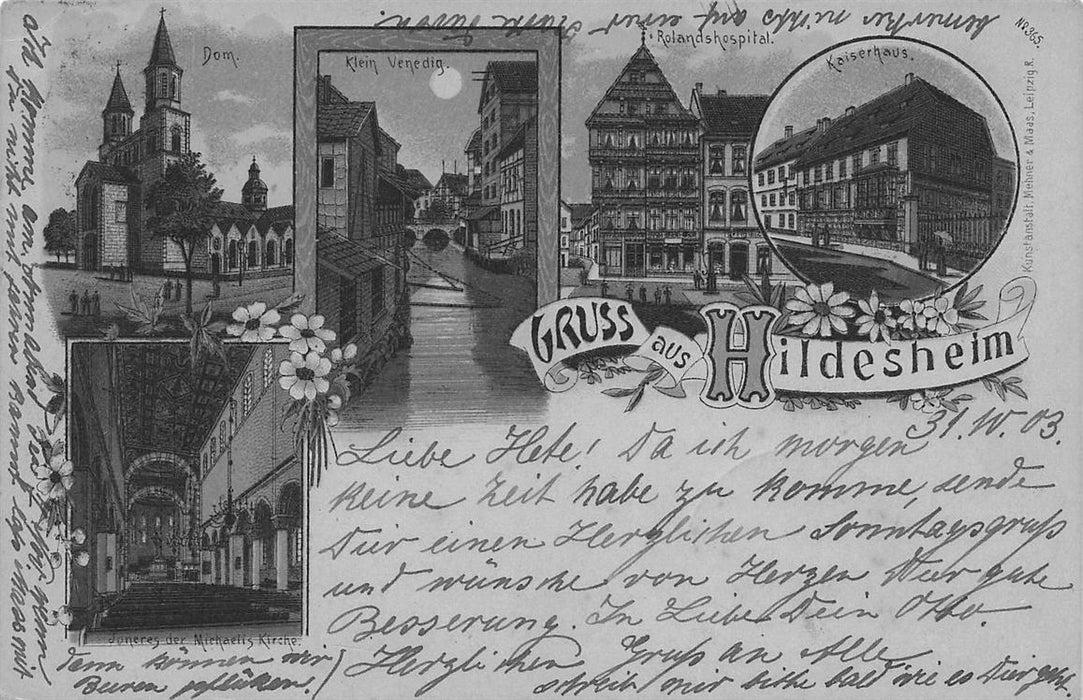 Dom.
Klein Venedig.
Rolandshospital.
Kaiserhaus.
No 365.
Kunstanstalt, Mehner & Maas, Leipzig R.
GRUSS
aus
Hildesheim
Jnneres der Michaelis Kirche.
31. IV. 03.
Liebe Hete! Da ich morgen
keine Zeit habe zu komme, sende
Dir einen Herzlichen Sonntagsgruß
und wünsche von Herzen Dier gute
Besserung. In Liebe Dein Otto.
Herzlichen Gruß an Alle
schreib mir bitte bald wie es Dier geht.
Ich komme an
Du nicht und
kommt das
mit
dann können wir
Beeren pflücken!
bemerke nichts auf einer